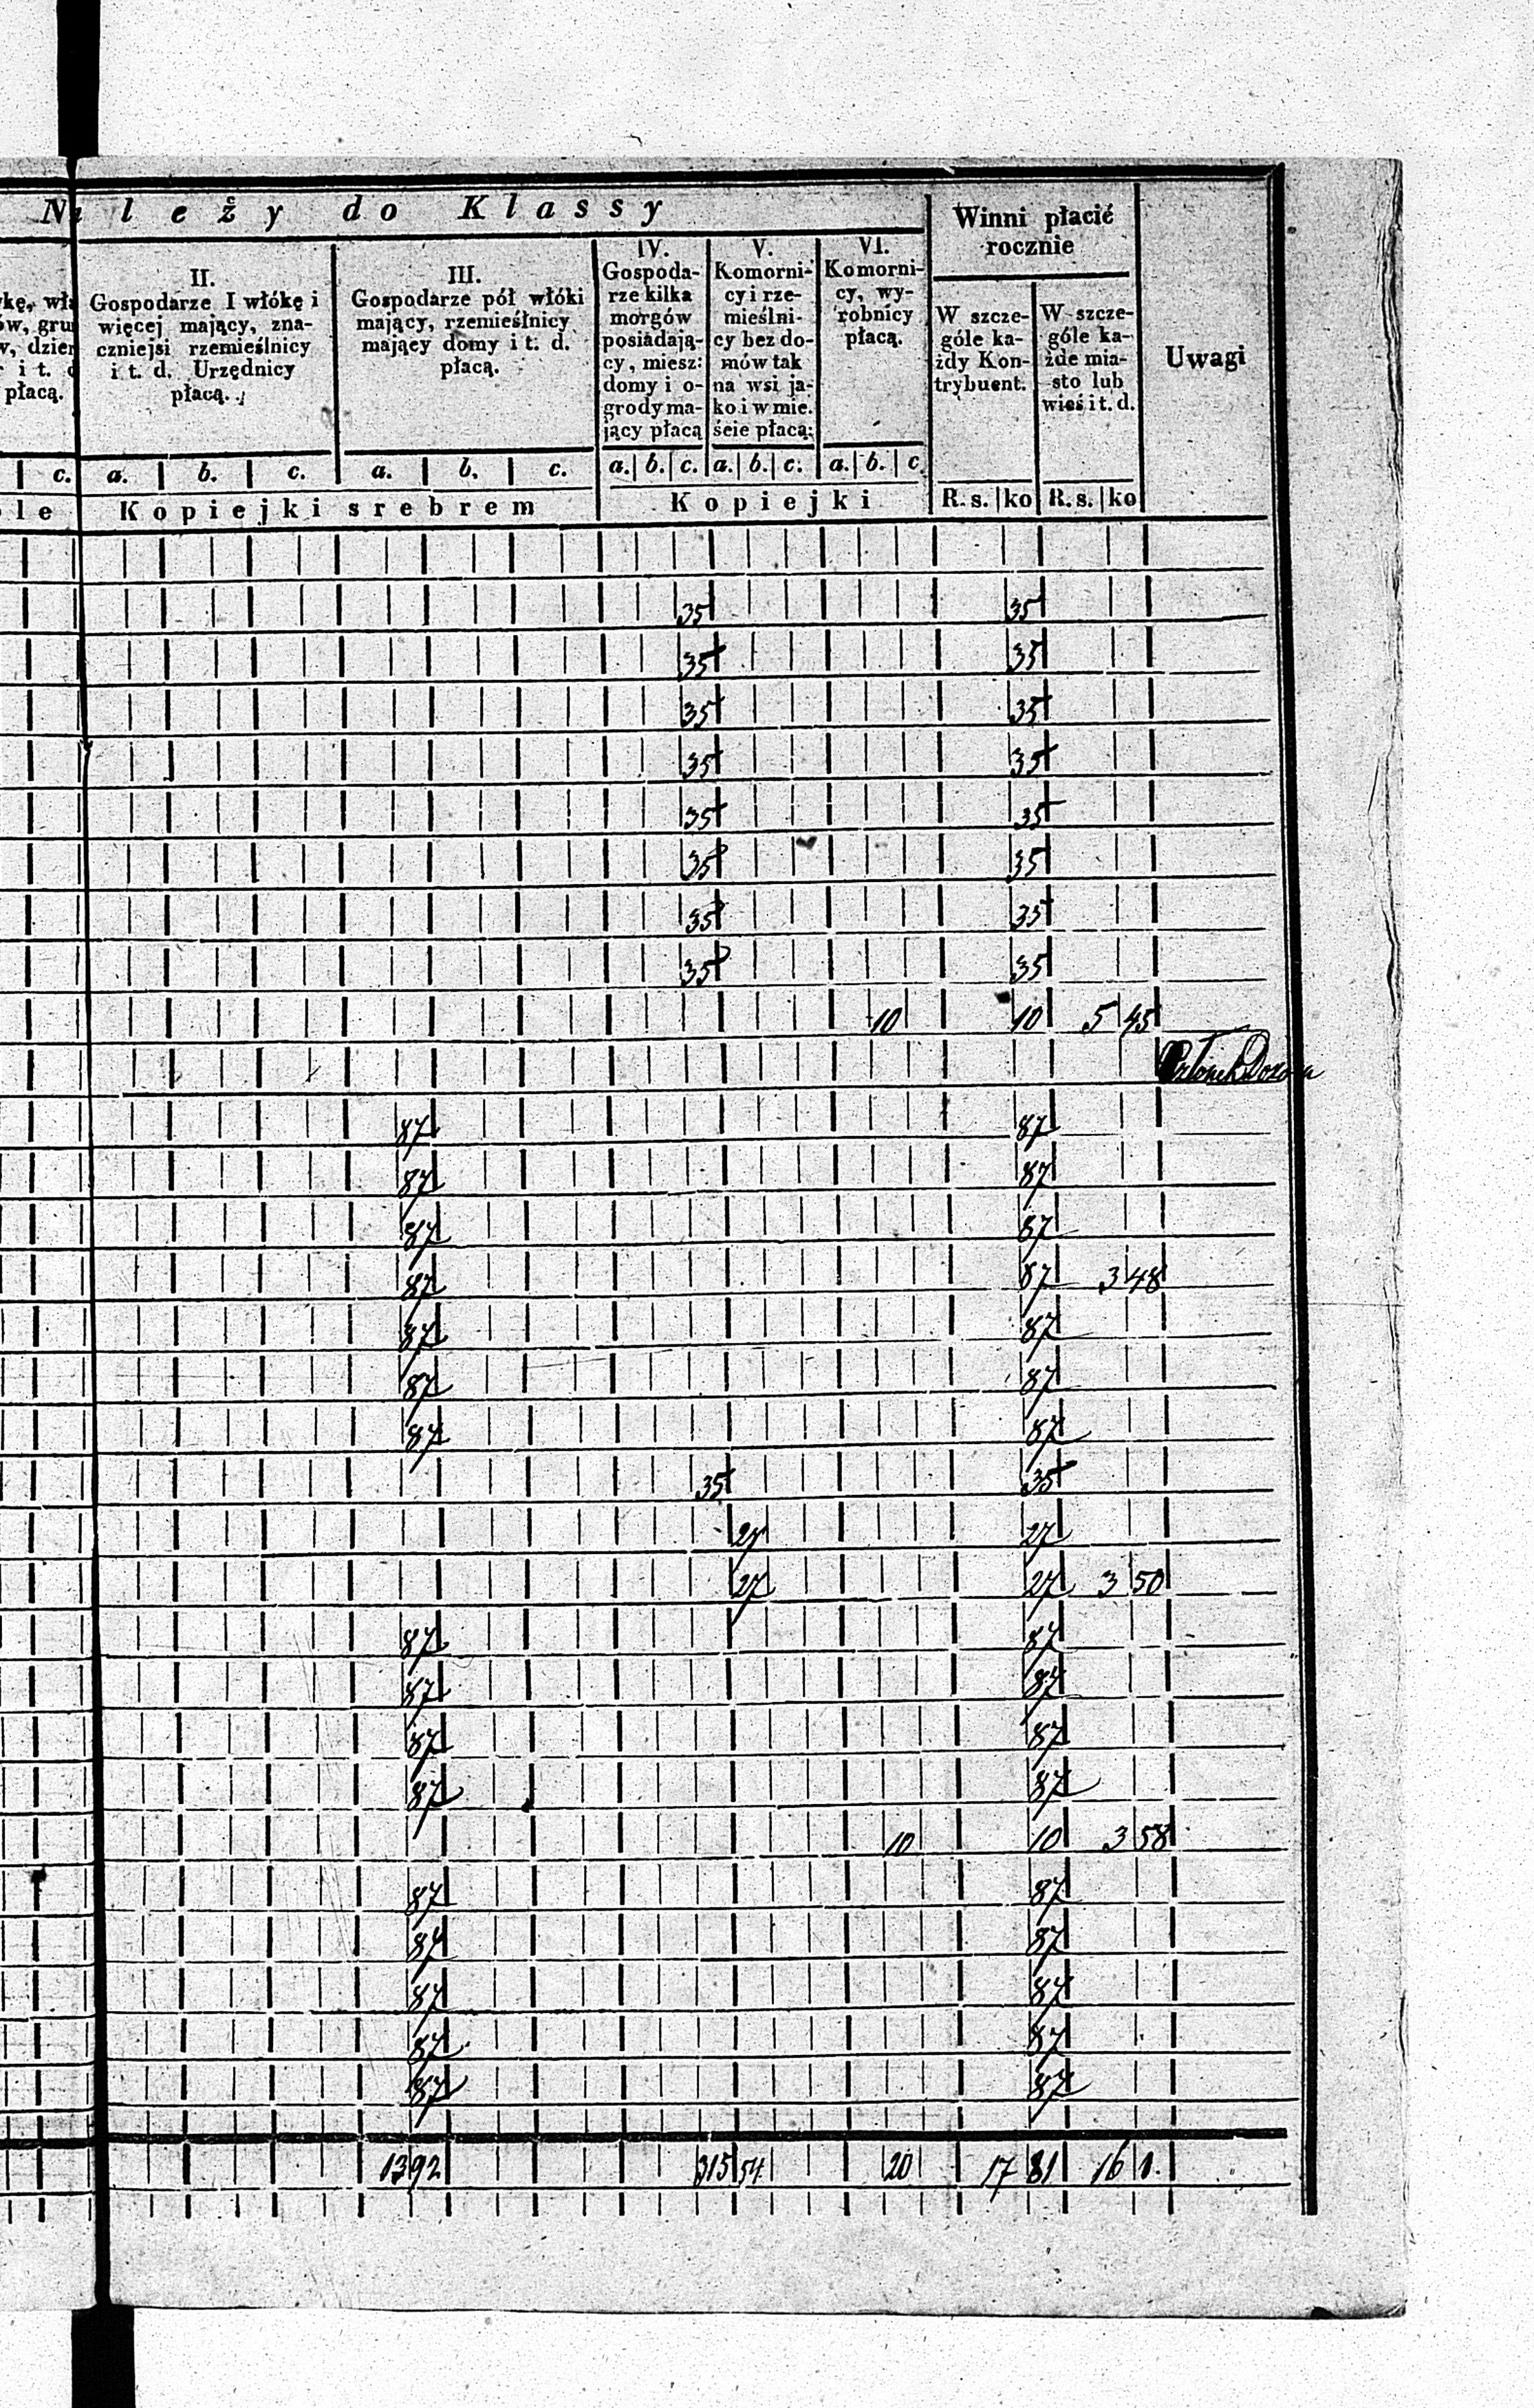 Należy do Klassy
Winni płacić
rocznie
Uwagi
kę, wła
ów, gru
w, dzier
i t. d
płacą.
II.
Gospodarze I włókę i
więcej mający, zna-
czniejsi rzemieślnicy
i t. d. Urzędnicy
płacą.
III.
Gospodarze pół włóki
mający, rzemieślnicy
mający domy i t. d.
płacą.
IV.
Gospoda-
rze kilka
morgów
posiadają-
cy, miesz:
domy i o-
grody ma-
jący płacą
V.
Komorni-
cy i rze-
mieślni-
cy bez do-
mów tak
na wsi ja-
ko i w mie.
ście płacą:
VI.
Komorni-
cy, wy-
robnicy
płacą.
W szcze-
góle ka-
żdy Kon-
trybuent.
W szcze-
góle ka-
żde mia-
sto lub
wieś i t. d.
c. a. b. c. a. b. c. a. b. c. a. b. c. a. b. c.
le Kopiejki srebrem Kopiejki R. s. ko R. s. ko
35 35
35 35
35 35
35 35
35 35
35 35
35 35
35 35
10 10 5 45
87 87
87 87
87 87
87 87 3 48
87 87
87 87
87 87
35 35
27 27
27 27 3 50
87 87
87 87
87 87
87 87
10 10 3 58
87 87
87 87
87 87
87 87
87 87
1392 315 54 20 17 81 16 1.